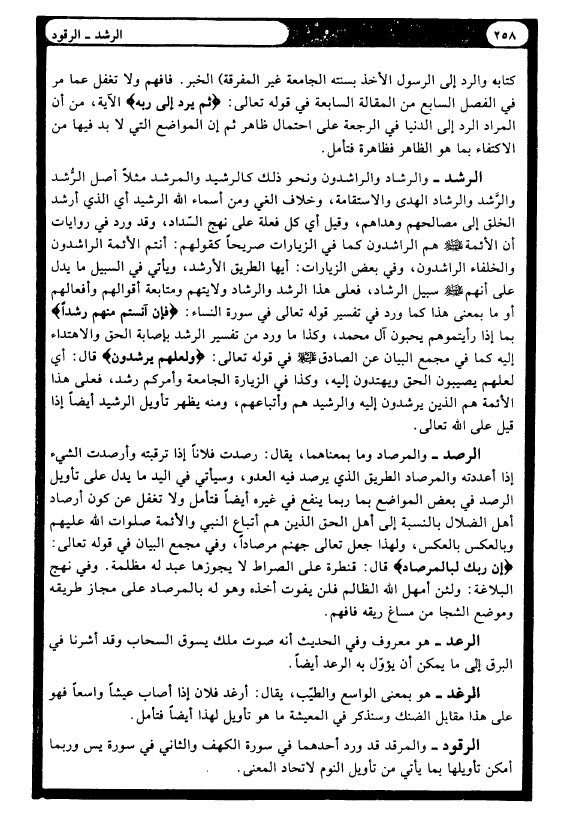 ٢٥٨
الرشد ـ الرقود
كتابه والرد إلى الرسول الأخذ بسنته الجامعة غير المفرقة) الخبر. فافهم ولا تغفل عما مر
في الفصل السابع من المقالة السابعة في قوله تعالى: ﴿ثم يرد إلى ربه﴾ الآية، من أن
المراد الرد إلى الدنيا في الرجعة على احتمال ظاهر ثم إن المواضع التي لا بد فيها من
الاكتفاء بما هو الظاهر فظاهرة فتأمل.
الرشد ـ والرشاد والراشدون ونحو ذلك كالرشيد والمرشد مثلاً أصل الرُّشد
والرَّشد والرشاد الهدى والاستقامة، وخلاف الغي ومن أسماء الله الرشيد أي الذي أرشد
الخلق إلى مصالحهم وهداهم، وقيل أي كل فعلة على نهج السّداد، وقد ورد في روايات
أن الأئمة ﷺ هم الراشدون كما في الزيارات صريحاً كقولهم: أنتم الأئمة الراشدون
والخلفاء الراشدون، وفي بعض الزيارات: أيها الطريق الأرشد، ويأتي في السبيل ما يدل
على أنهم ﷺ سبيل الرشاد، فعلى هذا الرشد والرشاد ولايتهم ومتابعة أقوالهم وأفعالهم
أو ما بمعنى هذا كما ورد في تفسير قوله تعالى في سورة النساء: ﴿فإن آنستم منهم رشداً﴾
بما إذا رأيتموهم يحبون آل محمد، وكذا ما ورد من تفسير الرشد بإصابة الحق والاهتداء
إليه كما في مجمع البيان عن الصادق ﷺ في قوله تعالى: ﴿ولعلهم يرشدون﴾ قال: أي
لعلهم يصيبون الحق ويهتدون إليه، وكذا في الزيارة الجامعة وأمركم رشد، فعلى هذا
الأئمة هم الذين يرشدون إليه والرشيد هم وأتباعهم، ومنه يظهر تأويل الرشيد أيضاً إذا
قيل على الله تعالى.
الرصد ـ والمرصاد وما بمعناهما، يقال: رصدت فلاناً إذا ترقبته وأرصدت الشيء
إذا أعددته والمرصاد الطريق الذي يرصد فيه العدو، وسيأتي في اليد ما يدل على تأويل
الرصد في بعض المواضع بما ربما ينفع في غيره أيضاً فتأمل ولا تغفل عن كون أرصاد
أهل الضلال بالنسبة إلى أهل الحق الذين هم أتباع النبي والأئمة صلوات الله عليهم
وبالعكس بالعكس، ولهذا جعل تعالى جهنم مرصاداً، وفي مجمع البيان في قوله تعالى:
﴿إن ربك لبالمرصاد﴾ قال: قنطرة على الصراط لا يجوزها عبد له مظلمة. وفي نهج
البلاغة: ولئن أمهل الله الظالم فلن يفوت أخذه وهو له بالمرصاد على مجاز طريقه
وموضع الشجا من مساغ ريقه فافهم.
الرعد ـ هو معروف وفي الحديث أنه صوت ملك يسوق السحاب وقد أشرنا في
البرق إلى ما يمكن أن يؤوّل به الرعد أيضاً.
الرغد ـ هو بمعنى الواسع والطيّب، يقال: أرغد فلان إذا أصاب عيشاً واسعاً فهو
على هذا مقابل الضنك وسنذكر في المعيشة ما هو تأويل لهذا أيضاً فتأمل.
الرقود ـ والمرقد قد ورد أحدهما في سورة الكهف والثاني في سورة يس وربما
أمكن تأويلها بما يأتي من تأويل النوم لاتحاد المعنى.